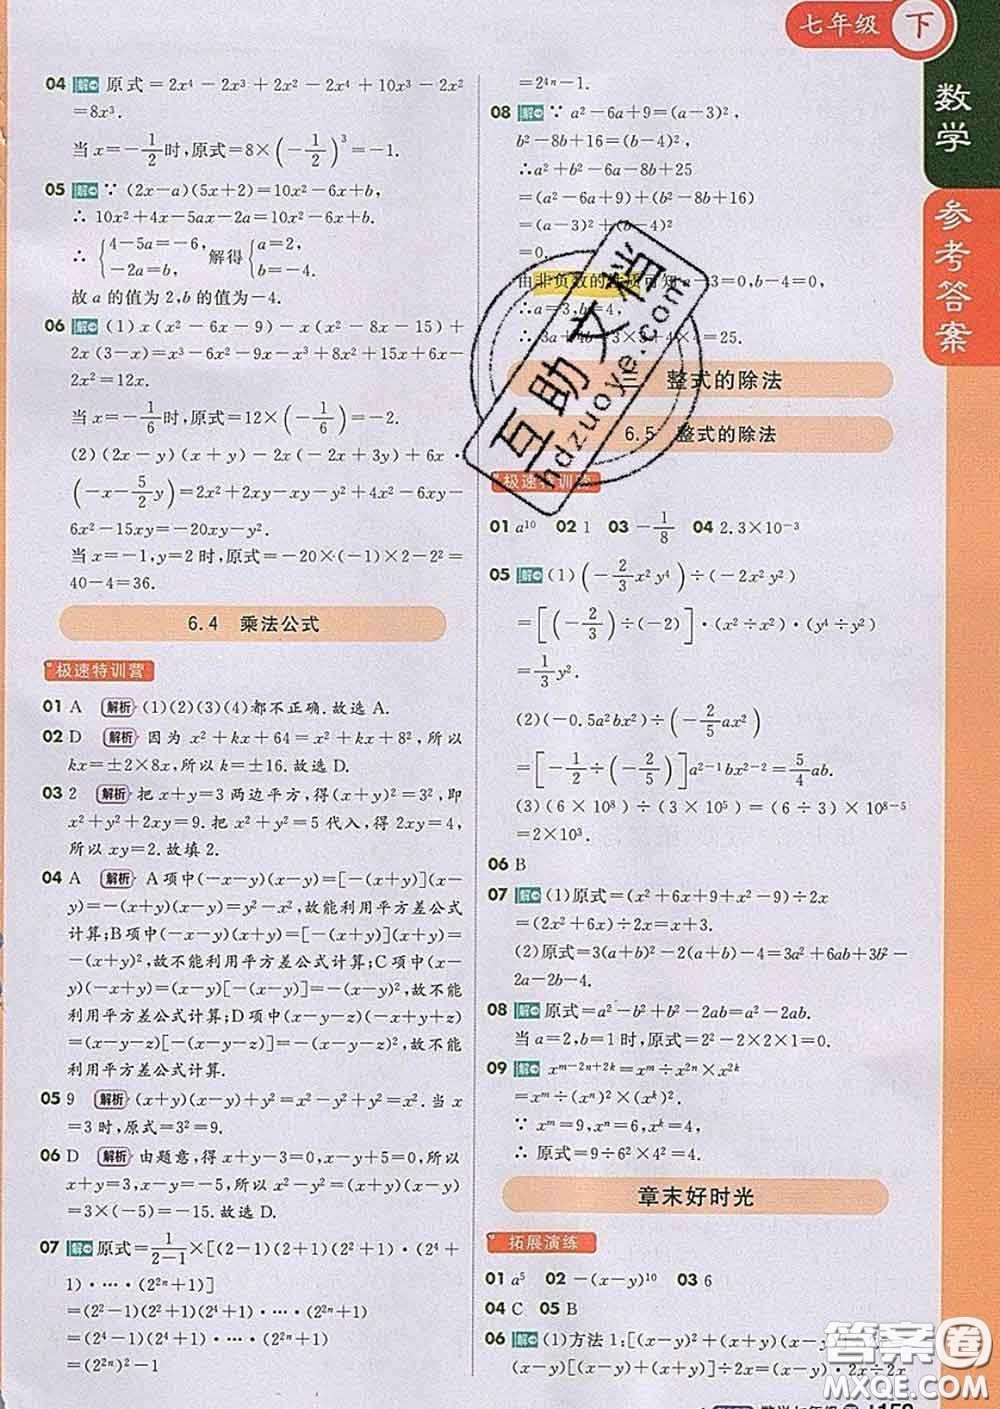 七年级 下
数学
参考答案
04 解 原式=2x⁴-2x³+2x²-2x⁴+10x³-2x²
=8x³.
当x=-1/2时,原式=8×(-1/2)³=-1.
05 解 ∵(2x-a)(5x+2)=10x²-6x+b,
∴10x²+4x-5ax-2a=10x²-6x+b.
∴{4-5a=-6, -2a=b, 解得{a=2, b=-4.
故a的值为2,b的值为-4.
06 解 (1)x(x²-6x-9)-x(x²-8x-15)+
2x(3-x)=x³-6x²-9x-x³+8x²+15x+6x-
2x²=12x.
当x=-1/6时,原式=12×(-1/6)=-2.
(2)(2x-y)(x+y)-2x(-2x+3y)+6x·
(-x-5/2y)=2x²+2xy-xy-y²+4x²-6xy-
6x²-15xy=-20xy-y².
当x=-1,y=2时,原式=-20×(-1)×2-2²=
40-4=36.
6.4 乘法公式
极速特训营
01 A 解析 (1)(2)(3)(4)都不正确.故选A.
02 D 解析 因为x²+kx+64=x²+kx+8²,所以
kx=±2×8x,所以k=±16.故选D.
03 2 解析 把x+y=3两边平方,得(x+y)²=3²,即
x²+y²+2xy=9.把x²+y²=5代入,得2xy=4,
所以xy=2.故填2.
04 A 解析 A项中(-x-y)(x-y)=[-(x+y)](x-
y)=-(x+y)(x-y)=y²-x²,故能利用平方差公式
计算;B项中(-x-y)(x+y)=[-(x+y)](x+y)=
-(x+y)²,故不能利用平方差公式计算;C项中(x-
y)(-x+y)=(x-y)[-(x-y)]=-(x-y)²,故不能
利用平方差公式计算;D项中(x-y-z)(-x+y+z)
=(x-y-z)[-(x-y-z)]=-(x-y-z)²,故不能利
用平方差公式计算.
05 9 解析 (x+y)(x-y)+y²=x²-y²+y²=x².当x
=3时,原式=3²=9.
06 D 解析 由题意,得x+y-3=0,x-y+5=0,所以
x+y=3,x-y=-5.所以x²-y²=(x+y)(x-y)
=3×(-5)=-15.故选D.
07 解 原式=1/(2-1)×[(2-1)(2+1)(2²+1)·(2⁴+
1)·…·(2²ⁿ+1)]
=(2²-1)(2²+1)(2⁴+1)·…·(2²ⁿ+1)
=(2⁴-1)(2⁴+1)·…·(2²ⁿ+1)
=(2²ⁿ)²-1
=2⁴ⁿ-1.
08 解 ∵a²-6a+9=(a-3)²,
b²-8b+16=(b-4)²,
∴a²+b²-6a-8b+25
=(a²-6a+9)+(b²-8b+16)
=(a-3)²+(b-4)²
=0.
由非负数的性质可知a-3=0,b-4=0,
∴a=3,b=4,
∴3a+4b=3×3+4×4=25.
三 整式的除法
6.5 整式的除法
极速特训营
01 a¹⁰ 02 1 03 -1/8 04 2.3×10⁻³
05 解 (1)(-2/3x²y⁴)÷(-2x²y²)
=[(-2/3)÷(-2)]·(x²÷x²)·(y⁴÷y²)
=1/3y².
(2)(-0.5a²bx²)÷(-2/5ax²)
=[-1/2÷(-2/5)]a²⁻¹bx²⁻²=5/4ab.
(3)(6×10⁸)÷(3×10⁵)=(6÷3)×10⁸⁻⁵
=2×10³.
06 B
07 解 (1)原式=(x²+6x+9+x²-9)÷2x
=(2x²+6x)÷2x=x+3.
(2)原式=3(a+b)²-2(a+b)-4=3a²+6ab+3b²-
2a-2b-4.
08 解 原式=a²-b²+b²-2ab=a²-2ab.
当a=2,b=1时,原式=2²-2×2×1=0.
09 解 xᵐ⁻²ⁿ⁺²ᵏ=xᵐ÷x²ⁿ×x²ᵏ
=xᵐ÷(xⁿ)²×(xᵏ)²,
∵xᵐ=9,xⁿ=6,xᵏ=4,
∴原式=9÷6²×4²=4.
章末好时光
拓展演练
01 a⁵ 02 -(x-y)¹⁰ 03 6
04 C 05 B
06 解 (1)方法1:[(x-y)²+(x+y)(x-y)]÷2x=
(x-y)[(x-y)+(x+y)]÷2x=(x-y)·2x÷2x
互助文档
hdzuoye.com
答案圈
MXQE.COM